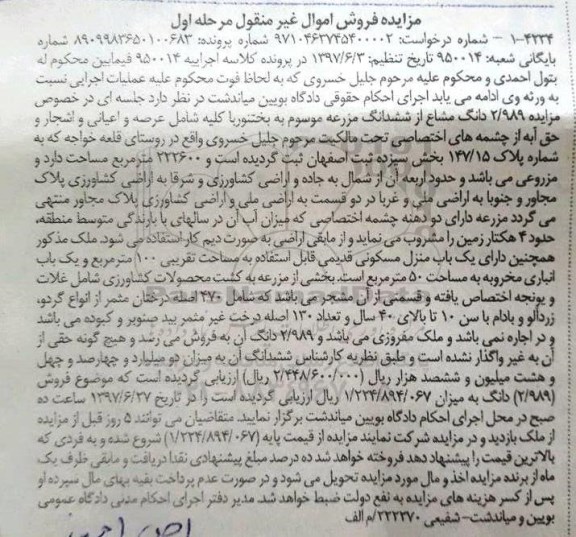 مزایده فروش اموال غیر منقول مرحله اول
۱-۴۲۳۴ - شماره درخواست: ۹۷۱۰۴۶۳۷۴۵۴۰۰۰۰۲ شماره پرونده: ۸۹۰۹۹۸۳۶۵۰۱۰۰۶۸۳ شماره
بایگانی شعبه: ۹۵۰۰۱۴ تاریخ تنظیم: ۱۳۹۷/۶/۳ در پرونده کلاسه اجراییه ۹۵۰۰۱۴ فیمابین محکوم له
بتول احمدی و محکوم علیه مرحوم جلیل خسروی که به لحاظ فوت محکوم علیه عملیات اجرایی نسبت
به ورثه وی ادامه می یابد اجرای احکام حقوقی دادگاه بویین میاندشت در نظر دارد جلسه ای در خصوص
مزایده ۲/۹۸۹ دانگ مشاع از ششدانگ مزرعه موسوم به بختنوربا کلیه شامل عرصه و اعیانی و اشجار و
حق آبه از چشمه های اختصاصی تحت مالکیت مرحوم جلیل خسروی واقع در روستای قلعه خواجه که به
شماره پلاک ۱۴۷/۱۵ بخش سیزده ثبت اصفهان ثبت گردیده است و ۲۲۲۶۰۰ مترمربع مساحت دارد و
مزروعی می باشد و حدود اربعه آن از شمال به جاده و اراضی کشاورزی و شرقا به اراضی کشاورزی پلاک
مجاور و جنوبا به اراضی ملی و غربا در دو قسمت به اراضی ملی و اراضی کشاورزی پلاک مجاور منتهی
می گردد مزرعه دارای دو دهنه چشمه اختصاصی که میزان آب آن در سالهای با بارندگی متوسط منطقه،
حدود ۴ هکتار زمین را مشروب می نماید و از مابقی اراضی به صورت دیم کار استفاده می شود. ملک مذکور
همچنین دارای یک باب منزل مسکونی قدیمی قابل استفاده به مساحت تقریبی ۱۰۰ مترمربع و یک باب
انباری مخروبه به مساحت ۵۰ مترمربع است. بخشی از مزرعه به کشت محصولات کشاورزی شامل غلات
و یونجه اختصاص یافته و قسمتی از آن مشجر می باشد که شامل ۴۷۰ اصله درختان مثمر از انواع گردو،
زردآلو و بادام با سن ۱۰ تا بالای ۴۰ سال و تعداد ۱۳۰ اصله درخت غیر مثمر بید صنوبر و کبوده می باشد
و در اجاره نمی باشد و ملک مفروزی می باشد و ۲/۹۸۹ دانگ آن به فروش می رسد و هیچ گونه حقی از
آن به غیر واگذار نشده است و طبق نظریه کارشناس ششدانگ آن به میزان دو میلیارد و چهارصد و چهل
و هشت میلیون و ششصد هزار ریال (۲/۴۴۸/۶۰۰/۰۰۰ ریال) ارزیابی گردیده است که موضوع فروش
(۲/۹۸۹) دانگ به میزان ۱/۲۲۴/۸۹۴/۰۶۷ ریال ارزیابی گردیده است را در تاریخ ۱۳۹۷/۶/۲۷ ساعت ده
صبح در محل اجرای احکام دادگاه بویین میاندشت برگزار نمایید. متقاضیان می توانند ۵ روز قبل از مزایده
از ملک بازدید و در مزایده شرکت نمایند مزایده از قیمت پایه (۱/۲۲۴/۸۹۴/۰۶۷) شروع شده و به فردی که
بالاترین قیمت را پیشنهاد دهد فروخته خواهد شد ده درصد مبلغ پیشنهادی نقدا دریافت و مابقی ظرف یک
ماه از برنده مزایده اخذ و مال مورد مزایده تحویل می شود و در صورت عدم پرداخت بقیه بهای مال سپرده او
پس از کسر هزینه های مزایده به نفع دولت ضبط خواهد شد. مدیر دفتر اجرای احکام مدنی دادگاه عمومی
بویین و میاندشت- شفیعی ۲۲۲۳۷۰/م الف